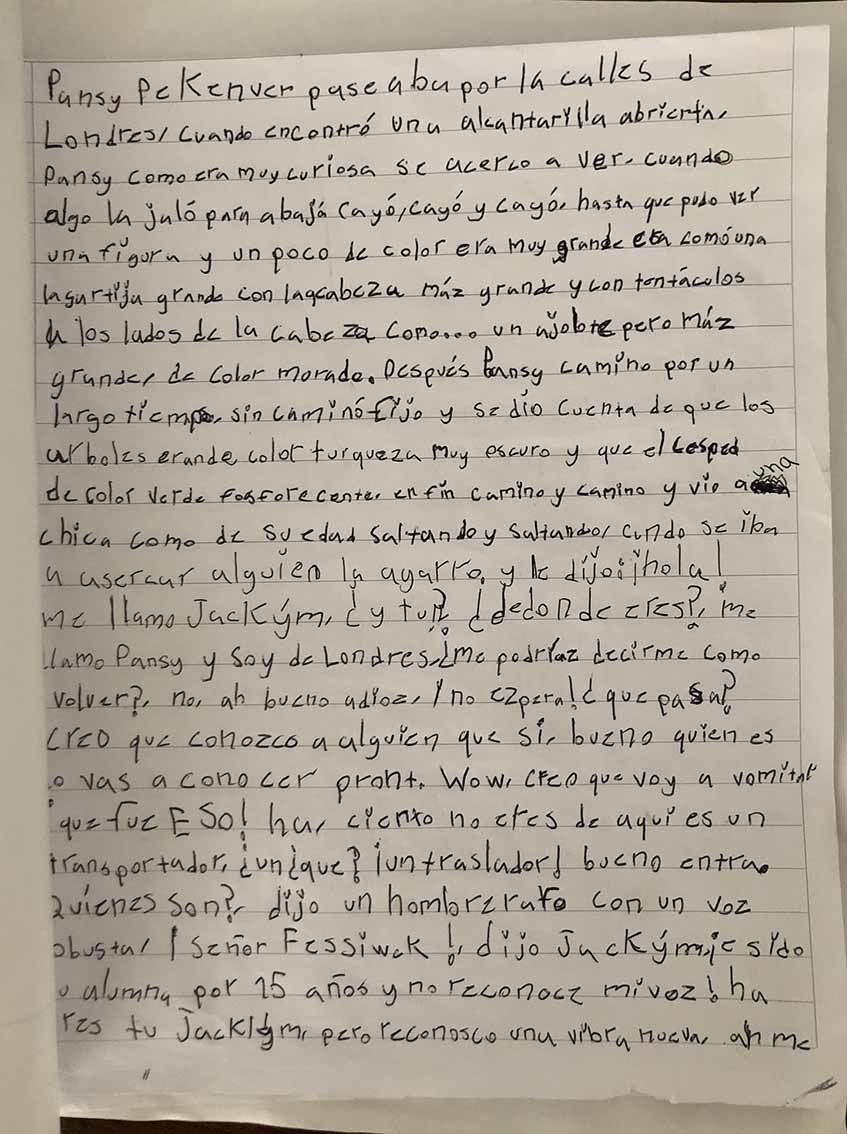 Pansy PeKenver paseaba por la calles de
Londres, cuando encontró una alcantarilla abrierta,
Pansy como era muy curiosa se acerco a ver, cuando
algo la jaló para abajá cayó, cayó y cayó, hasta que pudo ver
una figura y un poco de color era muy grande era comó una
lagartija grande con la cabeza máz grande y con tentáculos
a los lados de la cabeza como... un ajolote pero máz
grande, de color morado. Después Pansy camino por un
largo tiempo, sin caminó fijo y se dio cuenta de que los
arboles eran de color turqueza muy escuro y que el cesped
de color verde fosforecente, en fin camino y camino y vio a una
chica como de su edad saltando y saltando, cundo se iba
a asercar alguien la agarro, y le dijo: ¡hola!
me llamo Jackým, ¿y tu? ¿de donde eres?, me
llamo Pansy y soy de Londres, ¿me podríaz decirme como
volver?, no, ah bueno adioz, ¡no ezpera! ¿que pasa?
creo que conozco a alguien que si, bueno quien es
lo vas a conocer pront. Wow, creo que voy a vomitar
que fue ESO! ha, cierto no eres de aqui es un
transportador, ¿un ¿que? ¡un traslador! bueno entra.
Quienes son?, dijo un hombre rato con un voz
obusta, ¡Señor Fessiwek!, dijo Jackým, e sido
u alumna por 15 años y no reconoce mi voz! ha
res tu Jacklým, pero reconosco una vibra nueva, ah me